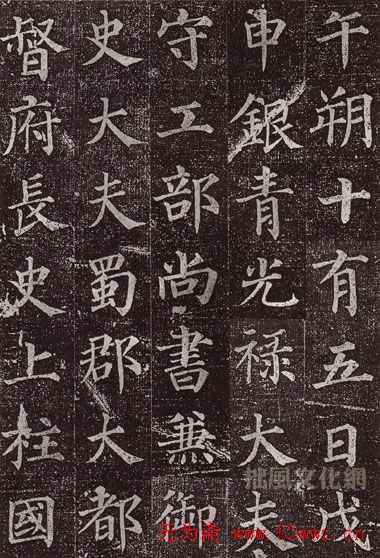 午朔十有五日戊
申銀青光祿大夫
守工部尚書兼御
史大夫蜀郡大都
督府長史上柱國
拙風文化網
www.52wwz.cn